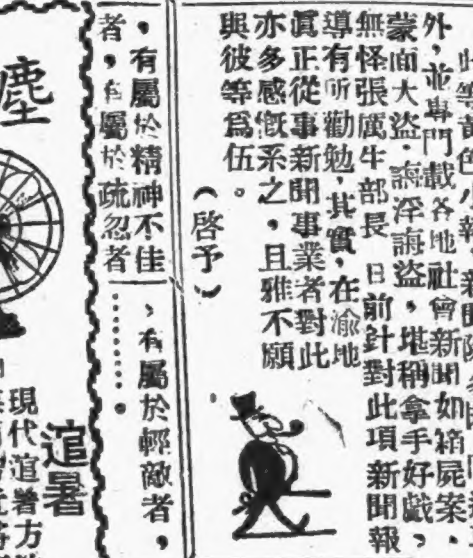 此等黃色小報
外，並專門載各地社會新聞如箱屍案、
蒙面大盜、誨淫誨盜，堪稱拿手好戲，
無怪張厲生部長 日前針對此項新聞報
導有所勸勉，其實，在渝地
眞正從事新聞事業者對此
亦多感慨系之，且雅不願
與彼等爲伍。
（啓予）
，有屬於精神不佳，有屬於輕敵者，
者，有屬於疏忽者………。
塵
逭暑
現代逭暑方